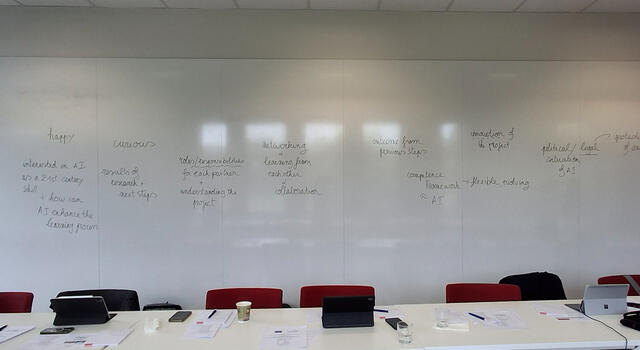 happy
interested in AI
as a 21st century
skill
+ how can
AI enhance the
learning process
curious
results of
research +
next steps
roles/responsibilities
for each partner
+
understanding the
project
networking
learning from
each other
collaboration
outcome from
previous steps
competence
framework → flexible evolving
AI
of the project
political / legal
of AI